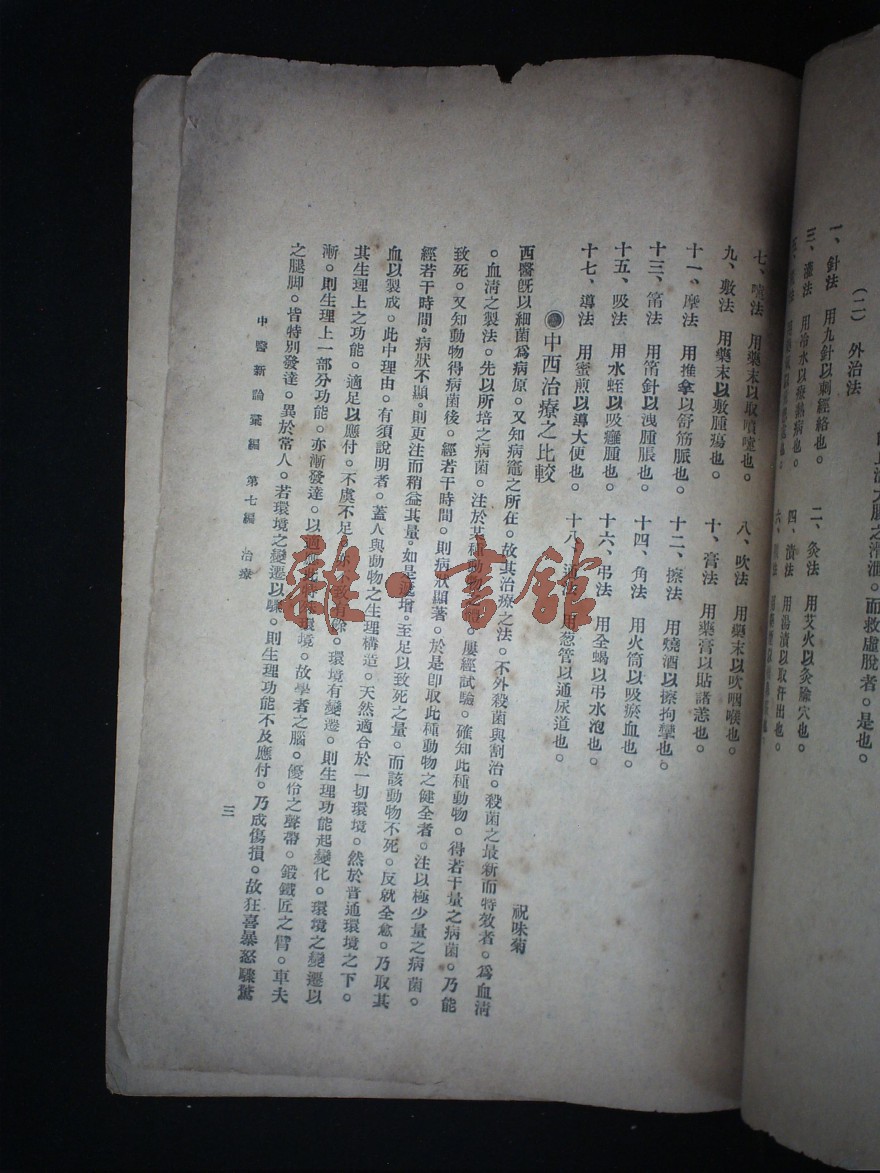 而救虛脫者。是也。
(二) 外治法
一、針法 用九針以刺經絡也。 二、灸法 用艾火以灸險穴也。
三、灌法 用冷水以療熱病也。 四、漬法 用湯漬以取汗出也。
七、嚏法 用藥末以取噴嚏也。 八、吹法 用藥末以吹咽喉也。
九、敷法 用藥末以敷腫瘍也。 十、膏法 用藥膏以貼諸恙也。
十一、摩法 用推拿以舒筋脈也。 十二、擦法 用燒酒以擦拘攣也。
十三、筩法 用筩針以洩腫脹也。 十四、角法 用火筒以吸瘀血也。
十五、吸法 用水蛭以吸癰腫也。 十六、弔法 用全蝎以弔水泡也。
十七、導法 用蜜煎以導大便也。 十八、通法 用葱管以通尿道也。
中西治療之比較
祝味菊
西醫旣以細菌爲病原。又知病竈之所在。故其治療之法。不外殺菌與割治。殺菌之最新而特效者。爲血淸
。血淸之製法。先以所培之病菌。注於某種動物。屢經試驗。確知此種動物。得若干量之病菌。乃能
致死。又知動物得病菌後。經若干時間。則病狀顯著。於是卽取此種動物之健全者。注以極少量之病菌。
經若干時間。病狀不顯。則更注而稍益其量。如是遞增。至足以致死之量。而該動物不死。反就全愈。乃取其
血以製成。此中理由。有須說明者。蓋人與動物之生理構造。天然適合於一切環境。然於普通環境之下。
其生理上之功能。適足以應付。不虞不足。亦不致有餘。環境有變遷。則生理功能起變化。環境之變遷以
漸。則生理上一部分功能。亦漸發達。以適應此特殊環境。故學者之腦。優伶之聲帶。鍛鐵匠之臂。車夫
之腿脚。皆特別發達。異於常人。若環境之變遷以驟。則生理功能不及應付。乃成傷損。故狂喜暴怒驟驚
中醫新論彙編 第七編 治療
三
雜·書館